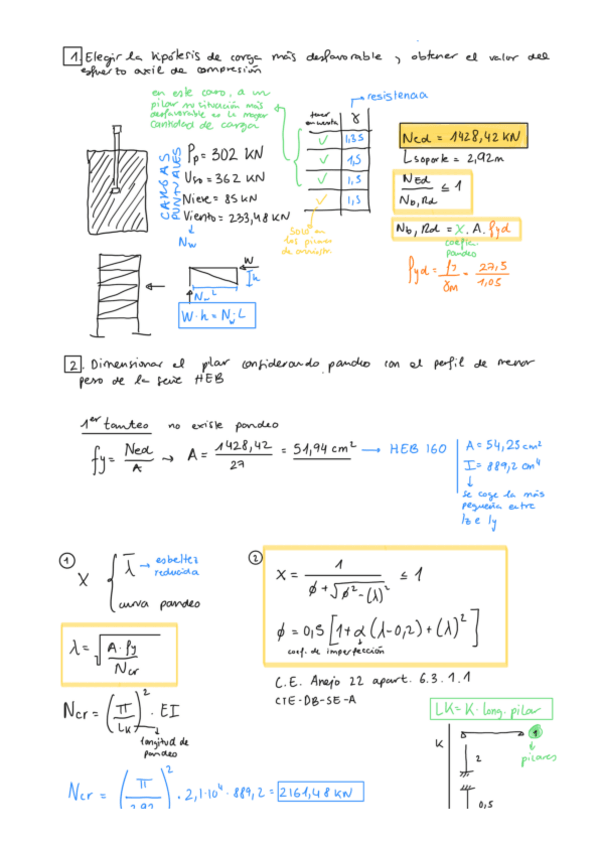 1. Elegir la hipótesis de carga más desfavorable y obtener el valor del
esfuerzo axil de compresión
en este caso, a un
pilar su situación más
desfavorable es la mayor
cantidad de carga
CARGAS
PUNTUALES
Pp = 302 KN
Uso = 362 KN
Nieve = 85 KN
Viento = 233,48 KN
Nw
tener
en cuenta
γ
→ resistencia
✓ 1,35
✓ 1,5
✓ 1,5
✓ 1,5
solo en
los pilares
Ned = 1428,42 KN
Lsoporte = 2,92m
NEd / Nb,Rd ≤ 1
Nb,Rd = χ . A . fyd
coefic.
pandeo
fyd = fy / γM = 27,5 / 1,05
W
h
Nw L
W·h = Nw·L
2. Dimensionar el pilar considerando pandeo con el perfil de menor
peso de la serie HEB
1er tanteo no existe pandeo
fy = Ned / A → A = 1428,42 / 27 = 51,94 cm² → HEB 160
A = 54,25 cm²
I = 889,2 cm⁴
se coge la más
pequeña entre
Iz e Iy
1
χ { λ̄ → esbeltez
reducida
curva pandeo
λ = √(A·fy / Ncr)
Ncr = (π / LK)² · EI
longitud de
pandeo
Ncr = (π / 2,92)² · 2,1·10⁴ · 889,2 = 2161,48 KN
2
χ = 1 / (ϕ + √(ϕ² - (λ)²)) ≤ 1
ϕ = 0,5 [1 + α (λ - 0,2) + (λ)²]
coef. de imperfección
C.E. Anejo 22 apart. 6.3.1.1
CTE-DB-SE-A
LK = K · long. pilar
K
1
pilares
2
0,5